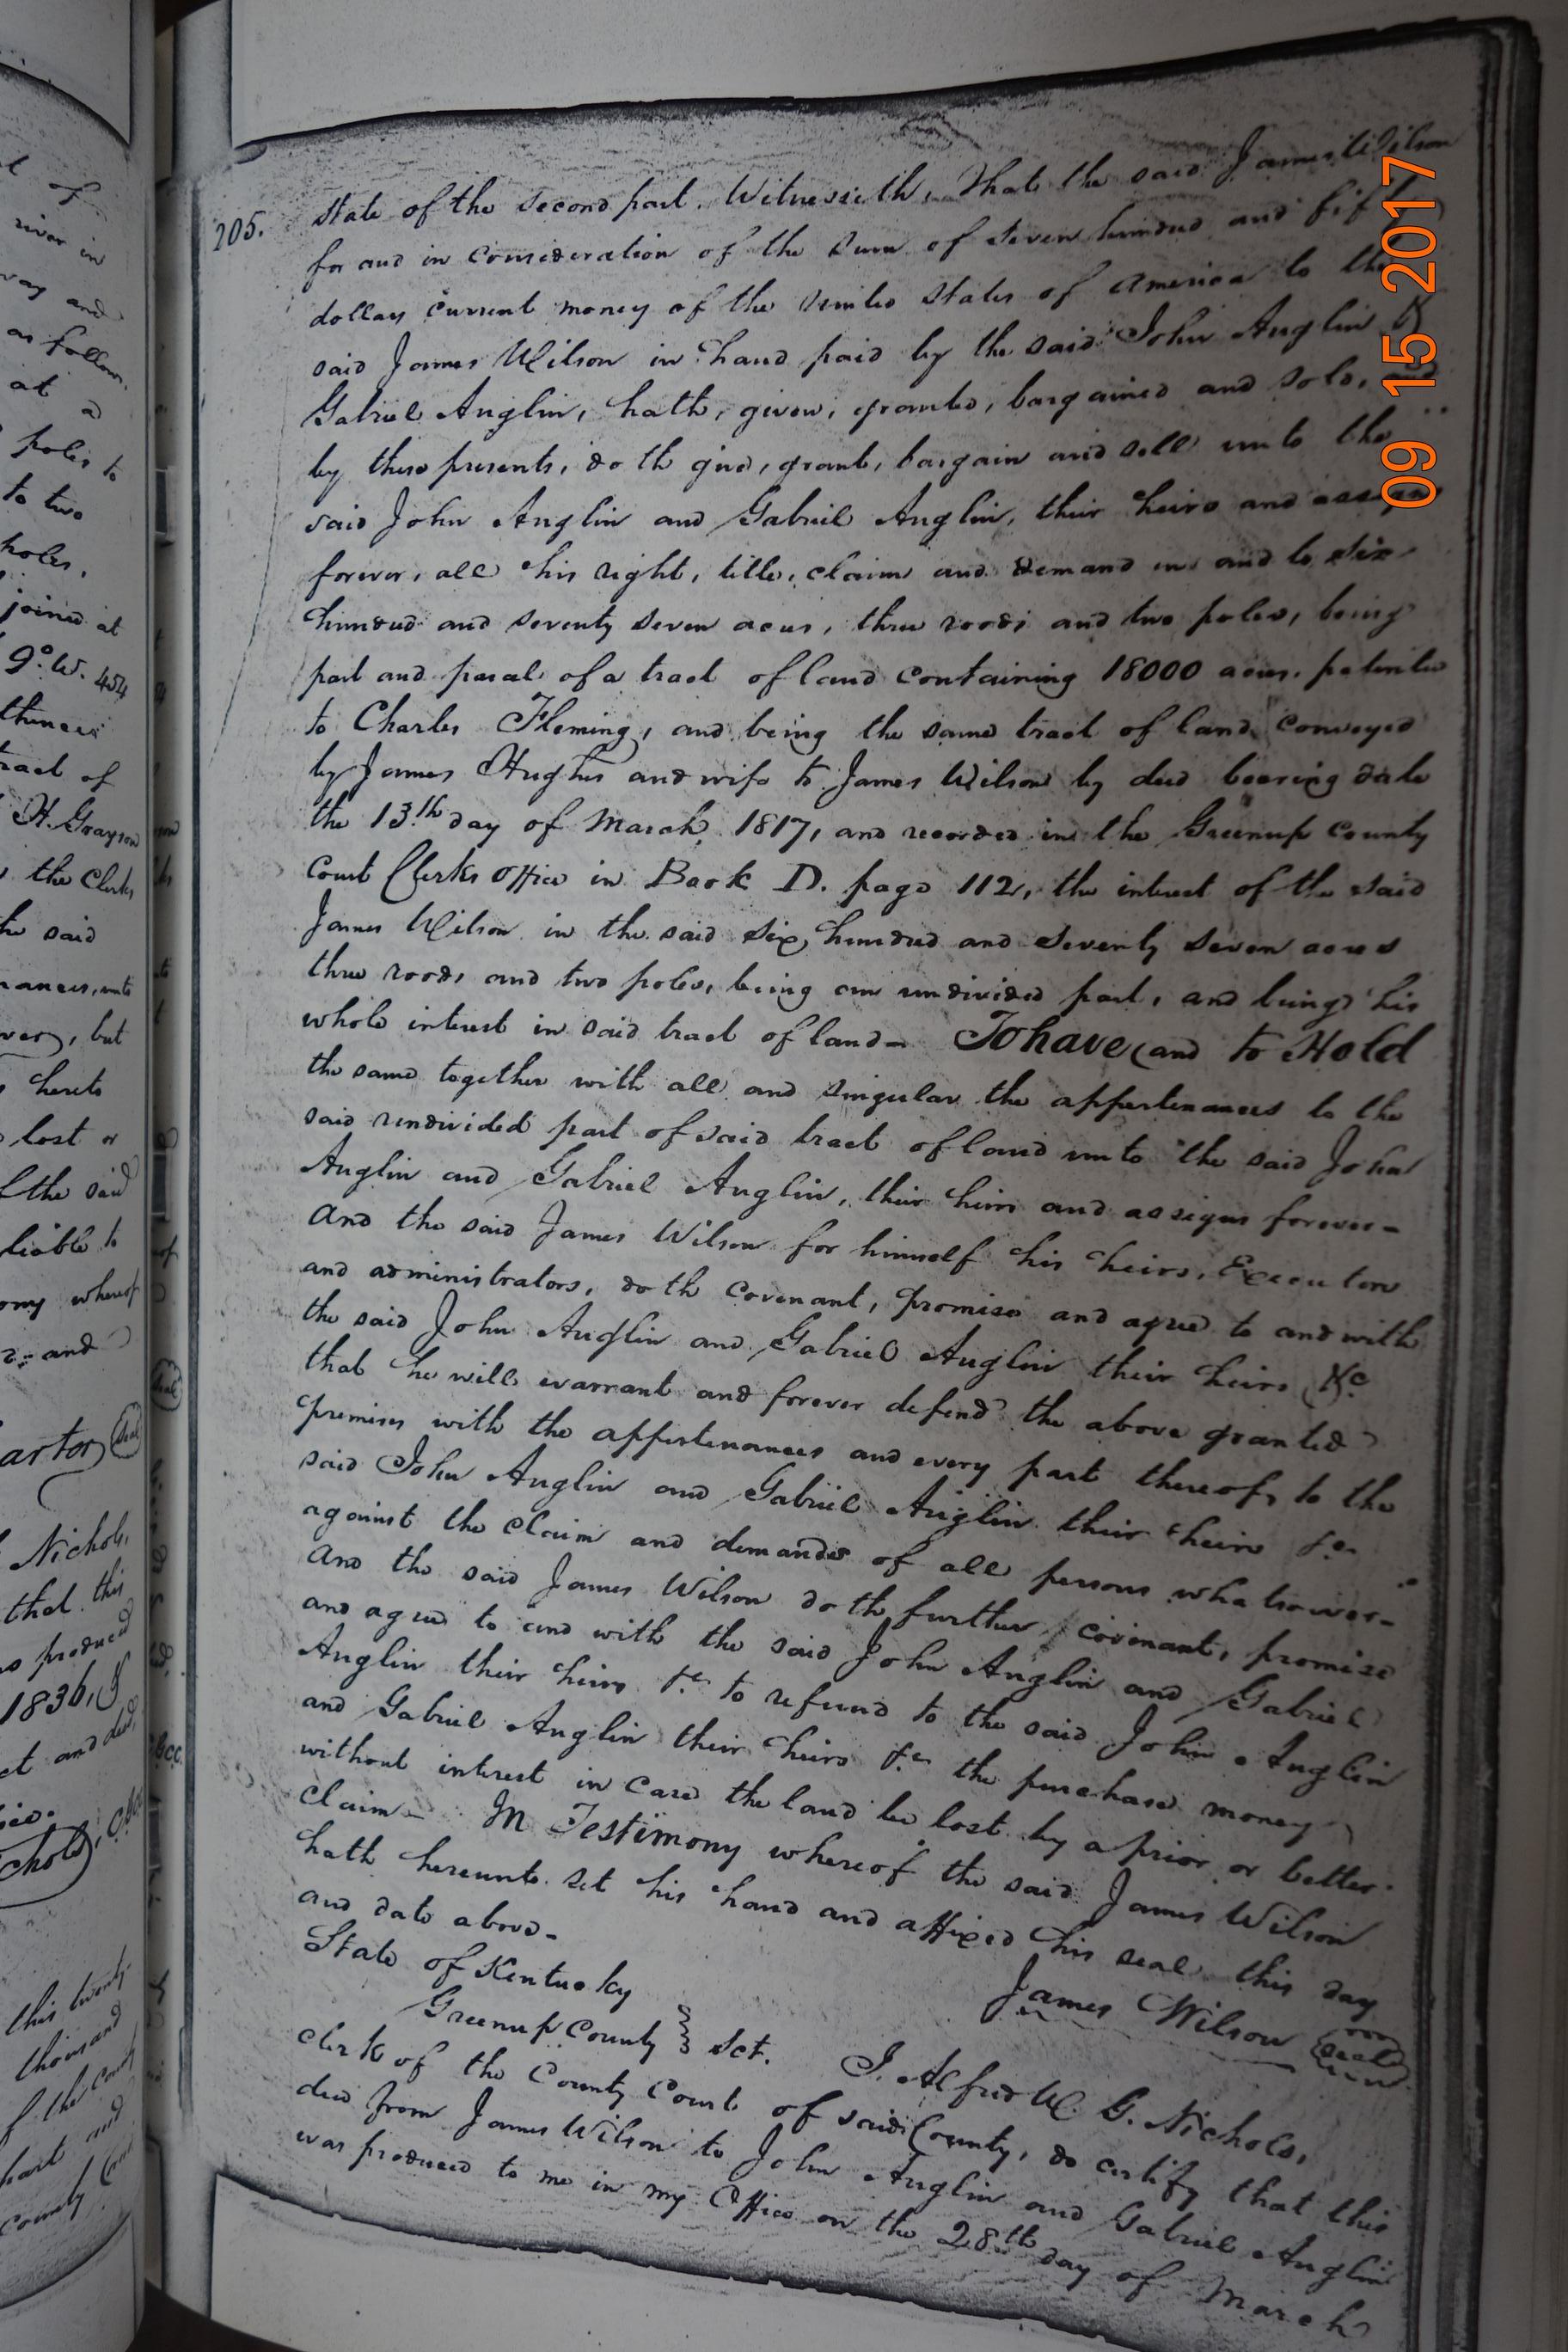 t of
river in
way and
as follow
at a
poles to
to two
poles,
joined at
9° W. 454
thence
tract of
H. Grayson
the Clerks
he said
nances, unto
ver, but
hereto
lost or
f the said
liable to
ony whereof
and
arter Seal
Nichols,
that this
produced
1836, &
ct and deed
ichols, C
this twenty
thousand
of the County
part and
County
205.
State of the second part. Witnesseth, That the said James Wilson
for and in consideration of the sum of seven hundred and fif
dollars current money of the United States of America to the
said James Wilson in hand paid by the said John Anglin &
Gabriel Anglin, hath, given, granted, bargained and sold, and
by these presents, doth give, grant, bargain and sell unto the
said John Anglin and Gabriel Anglin, their heirs and assigns
forever, all his right, title, claim and demand in and to six
hundred and seventy seven acres, three roods and two poles, being
part and parcel of a tract of land containing 18000 acres. patented
to Charles Fleming, and being the same tract of land conveyed
by James Hughes and wife to James Wilson by deed bearing date
the 13th day of March 1817, and recorded in the Greenup County
Court Clerks office in Book D. page 112, the interest of the said
James Wilson in the said six hundred and seventy seven acres
three roods and two poles, being an undivided part, and being his
whole interest in said tract of land- To have and to Hold
the same together with all and singular the appertenances to the
said undivided part of said tract of land unto the said John
Anglin and Gabriel Anglin, their heirs and assigns forever-
And the said James Wilson for himself his heirs, Executors
and administrators, doth covenant, promise and agree to and with
the said John Anglin and Gabriel Anglin their heirs &c
that he will warrant and forever defend the above granted
premises with the appertenances and every part thereof, to the
said John Anglin and Gabriel Anglin their heirs &c
against the claim and demands of all persons whatsoever-
And the said James Wilson doth further covenant, promise
and agree to and with the said John Anglin and Gabriel
Anglin their heirs &c to refund to the said John Anglin
and Gabriel Anglin their heirs &c the purchase money
without interest in case the land be lost by a prior or better
claim- In Testimony whereof the said James Wilson
hath hereunto set his hand and affixed his seal this day
and date above-
James Wilson Seal
State of Kentucky
Greenup County } Sct.
I. Alfred W. G. Nichols,
clerk of the County Court of said County, do certify that this
deed from James Wilson to John Anglin and Gabriel Anglin
was produced to me in my Office on the 28th day of March
09 15 2017